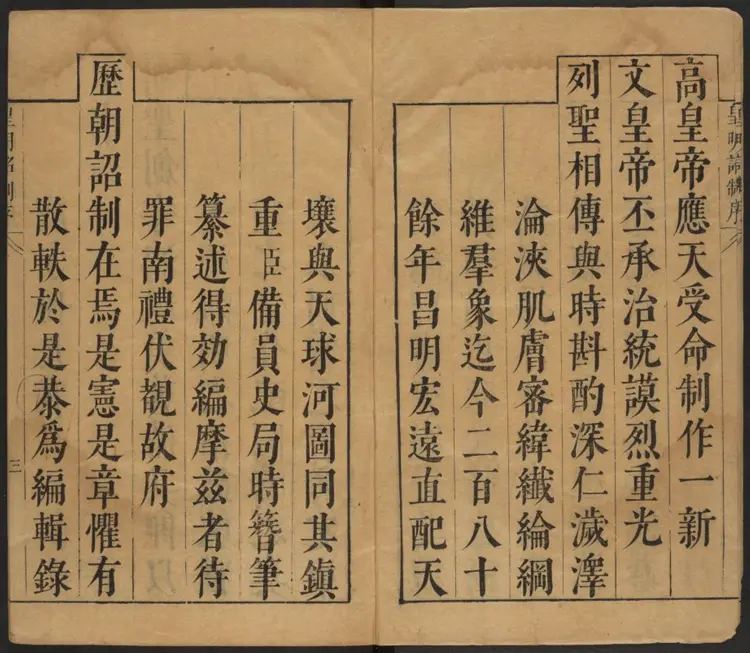 皇明詔制序
高皇帝應天受命制作一新
文皇帝丕承治統謨烈重光
列聖相傳與時斟酌深仁濊澤
淪浹肌膚審緯纎綸綱
維羣象迄今二百八十
餘年昌明宏遠直配天
壤與天球河圖同其鎮
重臣備員史局時簪筆
纂述得効編摩兹者待
罪南禮伏覩故府
歷朝詔制在焉是憲是章懼有
散軼於是恭爲編輯錄
皇明詔制序
三